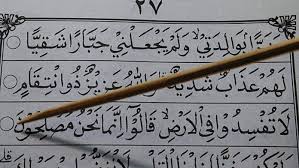 ٢٧
وَّبَرًّا بِوَالِدَتِيْ وَلَمْ يَجْعَلْنِيْ جَبَّارًا شَقِيًّا ○
لَهُمْ عَذَابٌ شَدِيْدٌ وَاللّٰهُ عَزِيْزٌ ذُو انْتِقَامٍ ○
لَا تُفْسِدُوْا فِى الْاَرْضِ ۙ قَالُوْٓا اِنَّمَا نَحْنُ مُصْلِحُوْنَ